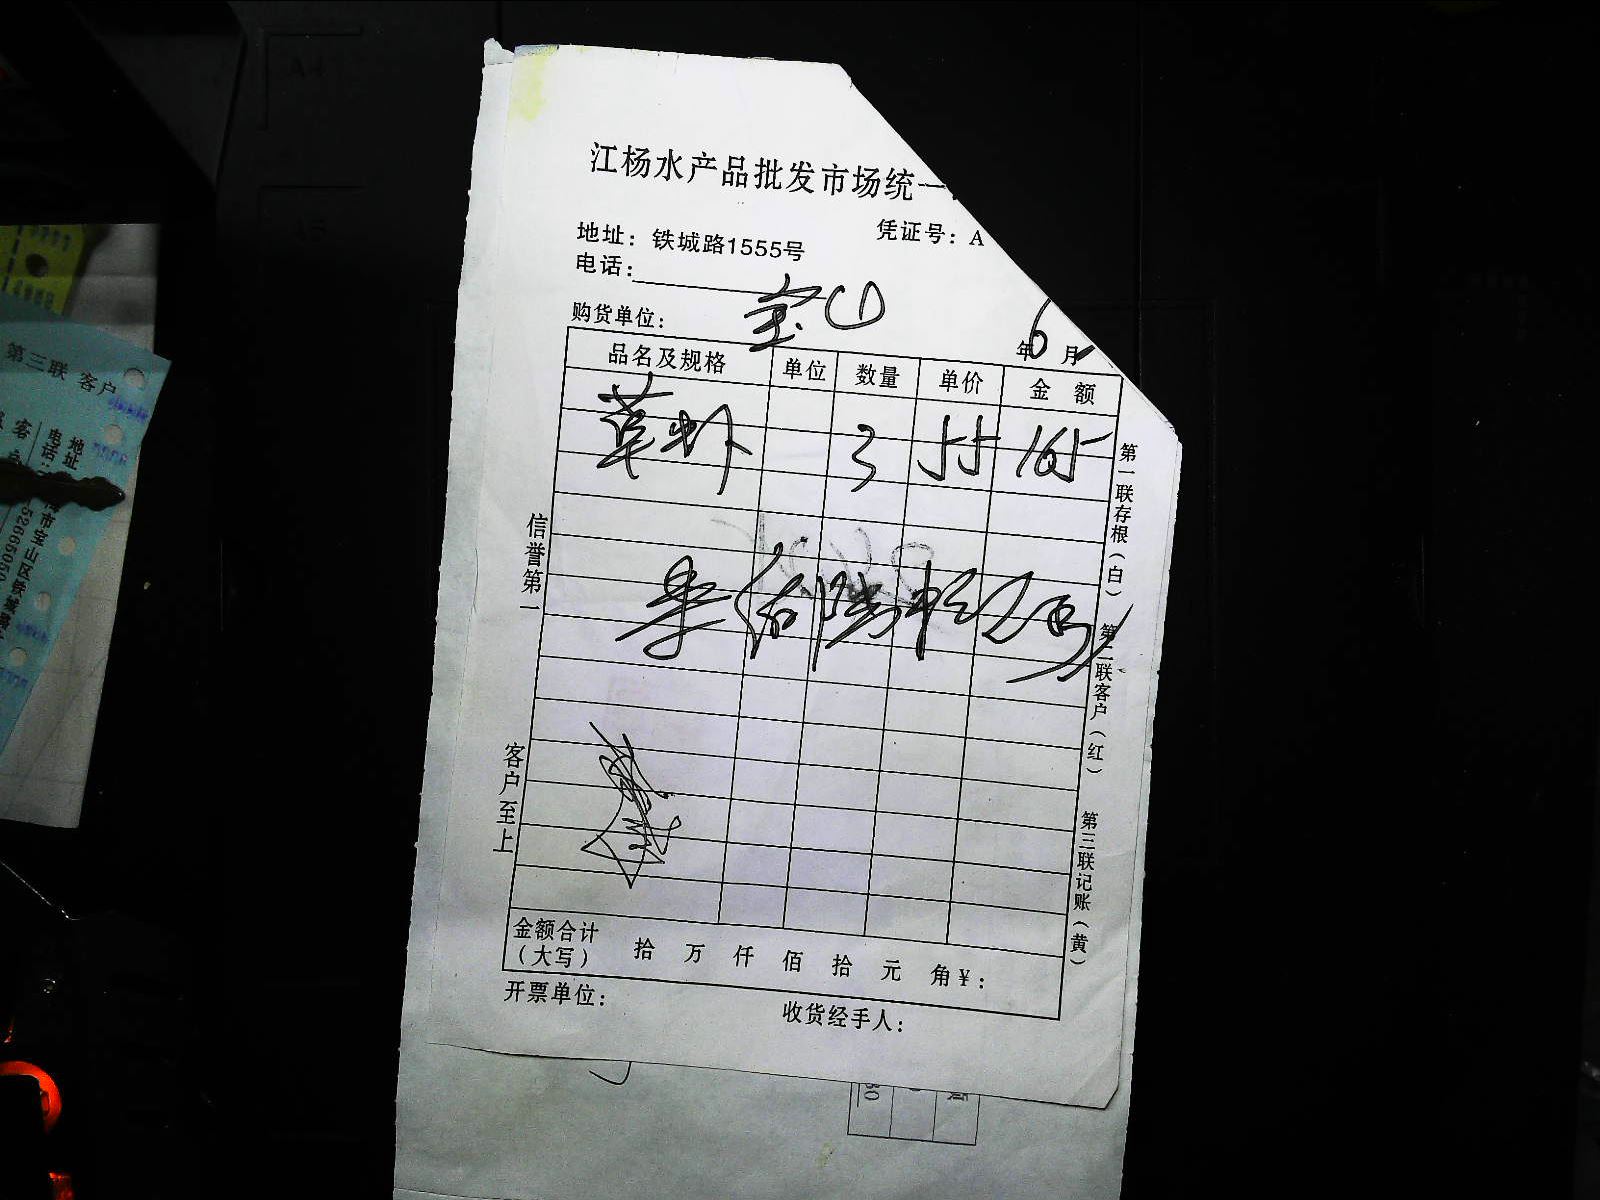 江杨水产品批发市场统一
凭证号：A
地址：铁城路1555号
电话：
购货单位：宝山
6
年 月
品名及规格 单位 数量 单价 金额
草虾 3 55 165
信誉第一
客户至上
第一联存根（白）
第二联客户（红）
第三联记账（黄）
金额合计（大写） 拾 万 仟 佰 拾 元 角 ¥：
开票单位：
收货经手人：
第三联 客户
地址
电话
市宝山区铁城